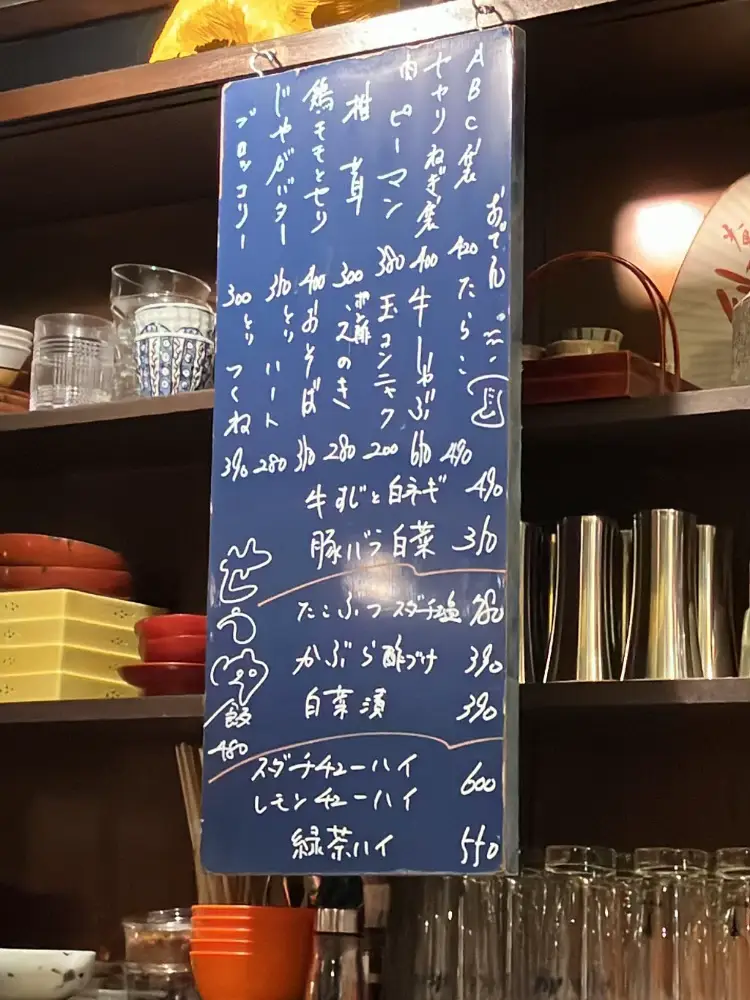 おでん
ABC袋 420
ヤヤリねぎ袋 400
肉ピーマン 380
椎茸 300
鶏モモとセリ 400
じゃがバター 310
ブロッコリー 300
たらこ 490
牛しゃぶ 610
玉コンニャク 200
えのき ポン酢 280
おそば 310
とりハート 280
とりつくね 390
牛すじと白ネギ 490
豚バラ白菜 310
たこぶつスダチ塩
かぶら酢づけ 390
白菜漬 390
飯 480
スダチチューハイ
レモンチューハイ 600
緑茶ハイ 550